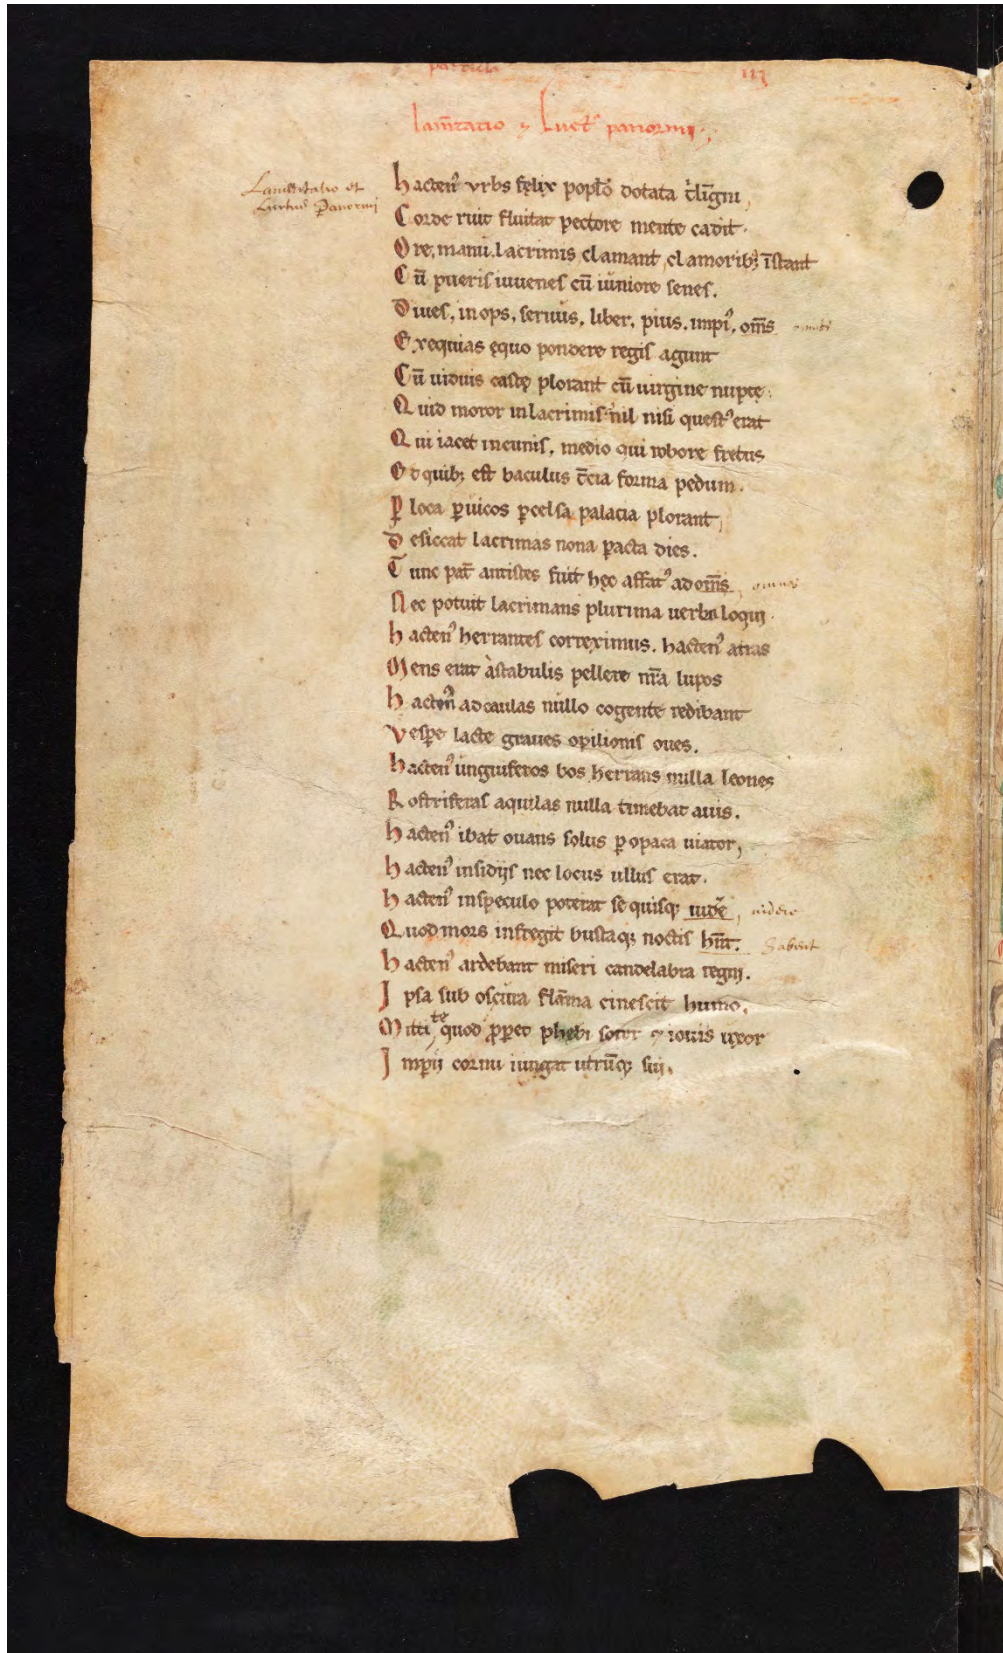 particula III
lam̄tatio ⁊ Luctꝰ panormi
Lamentatio et
Luctus Panormi
hactenꝰ vrbs felix poplō dotata tͥlīgni,
Corde ruit fluitat pectore mente cadit.
Ore, manu, lacrimis clamant, clamoribꝫ īstant
Cū pueris iuuenes cū iuniore senes.
Diues, inops, seruus, liber, pius, impiꝰ, om̄s omnes
Exequias equo pondere regis agunt
Cū uiduis castę plorant cū uirgine nuptę.
Quid moror in lacrimis nil nisi questꝰ erat
Qui iacet in cunis, medio qui robore fretus
Et quibꝫ est baculus t̄cia forma pedum.
Ꝑ loca ꝑ uicos ꝑ celsa palacia plorant,
Desiccat lacrimas nona ꝑacta dies.
Tunc pat̄ antistes fuit hęc affatꝰ ad om̄s, omnes
Nec potuit lacrimans plurima uerba loqui.
hactenꝰ herrantes correximus. hactenꝰ atras
Mens erat à stabulis pellere nr̄a lupos
hactenꝰ ad caulas nullo cogente redibant
Vesꝑe lacte graues opilionis oues.
hactenꝰ unguiferos bos herrans nulla leones
Rostriferas aquilas nulla timebat auis.
hactenꝰ ibat ouans solus ꝑ opaca uiator,
hactenꝰ insidijs nec locus ullus erat.
hactenꝰ in speculo poterat se quisqꝫ uid̄e, uidere
Quod mors infregit bustaqꝫ noctis hn̄t. habent
hactenꝰ ardebant miseri candelabra regni.
Ipsa sub oscura flāma cinescit humo.
Mittite quod ꝓꝑet phebi soror ⁊ iouis uxor
Imꝑij cornu iungat utrūqꝫ sui.